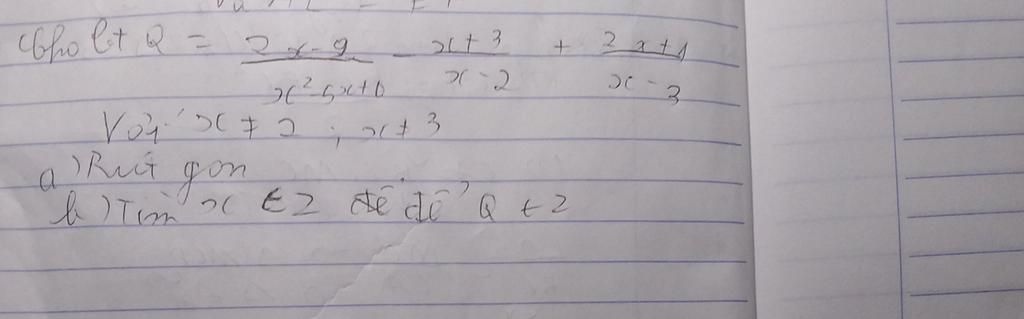 Cho bt Q = \frac{2x-9}{x^2-5x+6} - \frac{x+3}{x-2} + \frac{2x+1}{x-3}
Với x ≠ 2 ; x ≠ 3
a) Rút gọn
b) Tìm x ∈ Z để Q ∈ Z